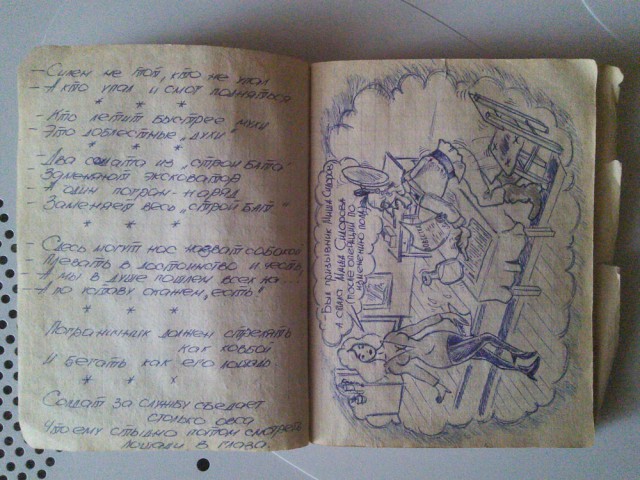 – Силен не тот, кто не упал
– А кто упал и смог подняться
* * *
– Кто летит быстрее мухи
– Это доблестные „духи“
* * *
– Два солдата из „строй бата“
– Заменяют эксковатор
– А один погран-наряд
– Заменяет весь „строй бат“
* * *
– Здесь могут нас назват
Плевать в достоинство и честь,
– А мы в душе пошлем всех на...
– А по уставу скажем, есть!
* * *
Пограничник должен стрелять
как ковбой
И бегать как его лошадь
* * *
Солдат за службу съедает
столько овса
Что ему стыдно потом смотреть
лошади в глаза.
– Был призывник Миша Сидоров
А стала Маша Сидорова
после операции по
изменению пола